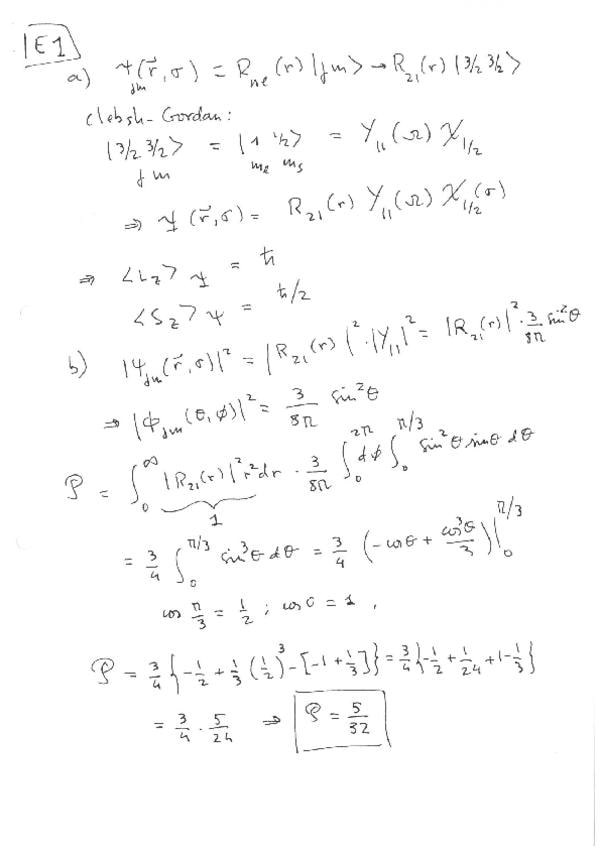 IE1
a) Ψ_jm(r⃗,σ) = R_nℓ(r)|jm> → R_21(r)|3/2 3/2>
Clebsh-Gordan:
|3/2 3/2> = |1 1/2> = Y_11(Ω) χ_1/2
j m m_ℓ m_s
⇒ Ψ(r⃗,σ) = R_21(r) Y_11(Ω) χ_1/2(σ)
⇒ <L_z>_Ψ = ħ
<S_z>_Ψ = ħ/2
b) |Ψ_jm(r⃗,σ)|² = |R_21(r)|²·|Y_11|² = |R_21(r)|²·3/8π sin²θ
⇒ |Φ_jm(θ,ϕ)|² = 3/8π sin²θ
P = ∫_0^∞ |R_21(r)|² r² dr · 3/8π ∫_0^2π dϕ ∫_0^π/3 sin²θ sinθ dθ
1
= 3/4 ∫_0^π/3 sin³θ dθ = 3/4 (-cosθ + cos³θ/3)|_0^π/3
cos π/3 = 1/2 ; cos 0 = 1 ,
P = 3/4 {-1/2 + 1/3 (1/2)³ - [-1 + 1/3]} = 3/4 {-1/2 + 1/24 + 1 - 1/3}
= 3/4 · 5/24 ⇒ P = 5/32